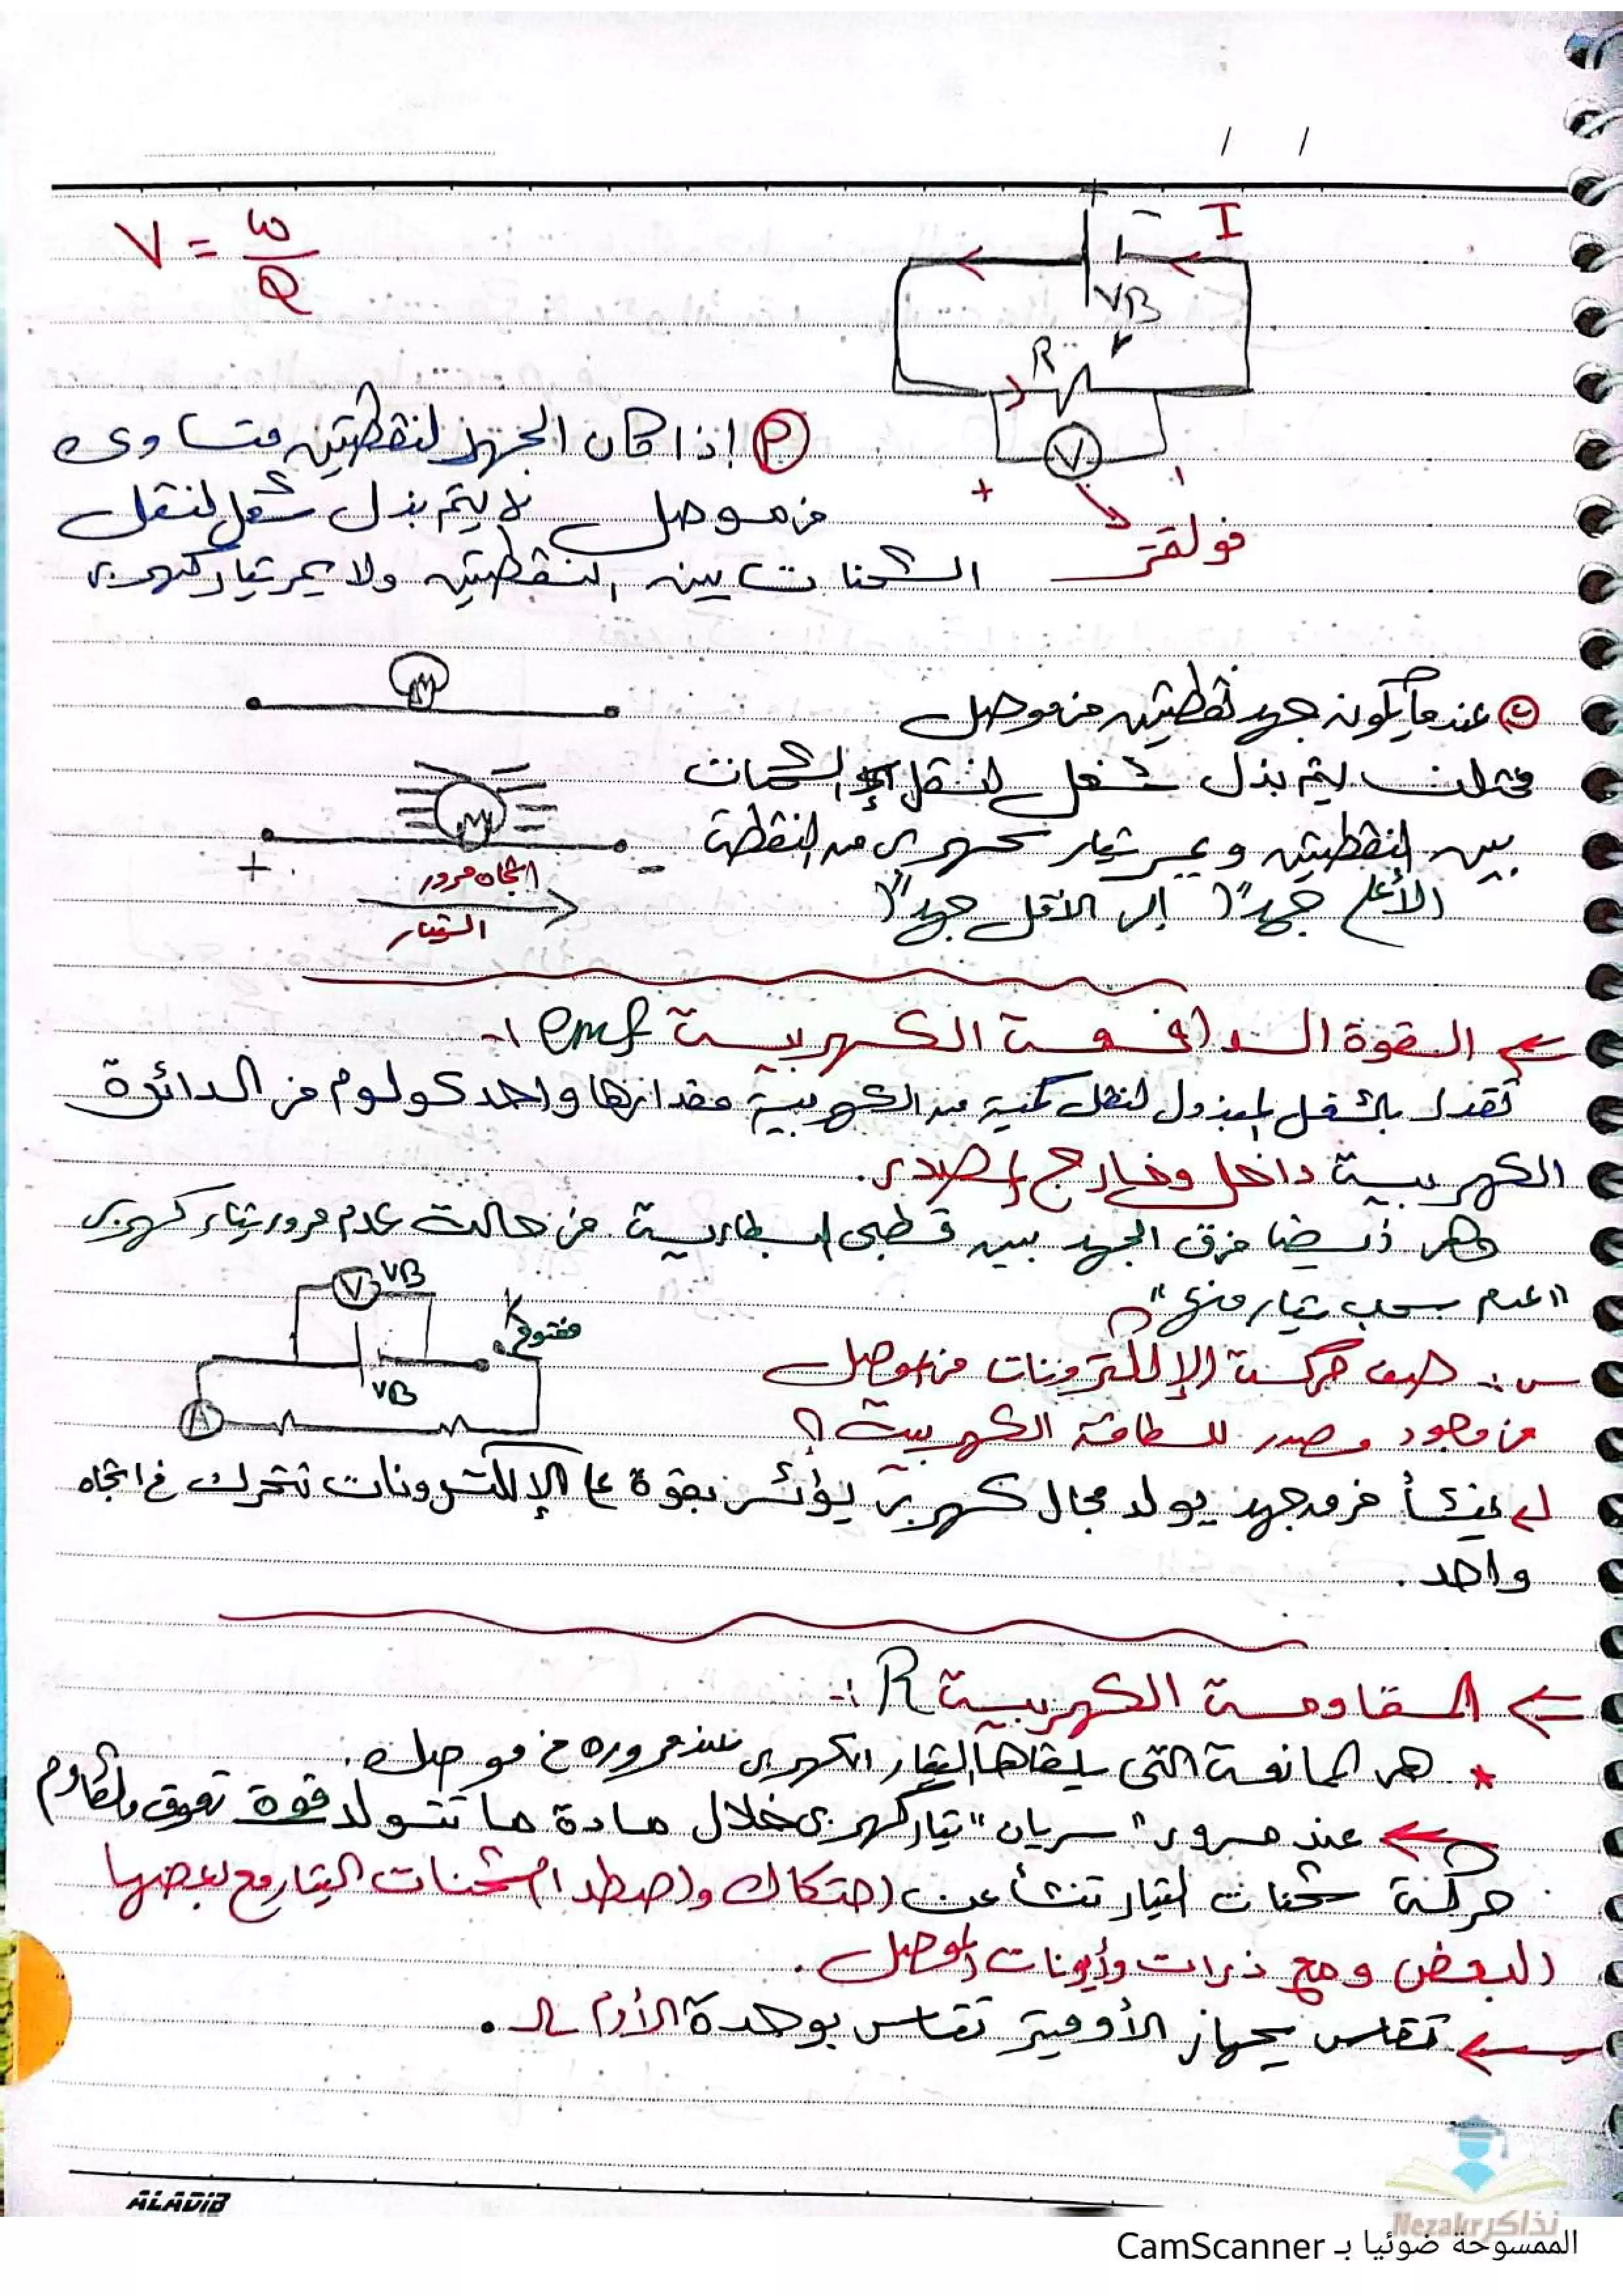 / /
V = w/Q
I
+ -
VB
R
V
+ -
فولتمتر
أ إذا كان الجهد لنقطتين متساوى
فى موصل لا يتم بذل شغل لنقل
الشحنات بين النقطتين ولا يمر تيار كهربى
ب عندما يكون جهد نقطتين فى موصل
مختلف يتم بذل شغل لنقل الشحنات
بين النقطتين ويمر تيار كهربى من النقطة
الأعلى جهداً إلى الأقل جهداً
+ -
اتجاه مرور
التيار
← القوة الدافعة الكهربية emf :-
تقدر بالشغل المبذول لنقل كمية من الكهربية مقدارها واحد كولوم فى الدائرة
الكهربية داخل وخارج المصدر.
وهى أيضا فرق الجهد بين قطبى البطارية فى حالة عدم مرور تيار كهربى
"عدم سحب تيار منها"
V VB
K
مفتوح
VB
A
س :- صف حركة الإلكترونات فى موصل
فى وجود مصدر للطاقة الكهربية ؟
ينشأ فرق جهد يولد مجال كهربى يؤثر بقوة على الإلكترونات تتحرك فى اتجاه
واحد .
← المقاومة الكهربية R :-
* هى الممانعة التى يلقاها التيار الكهربى عند مروره فى موصل.
← عند مرور "سريان" تيار كهربى خلال مادة ما تتولد قوة تعوق وتقاوم
حركة شحنات التيار تنشأ عن احتكاك واصطدام شحنات التيار مع بعضها
البعض ومع ذرات وأيونات الموصل .
← تقاس بجهاز الأوميتر تقاس بوحدة الأوم .
ALADIB
نذاكر Nezakr
الممسوحة ضوئيا بـ CamScanner